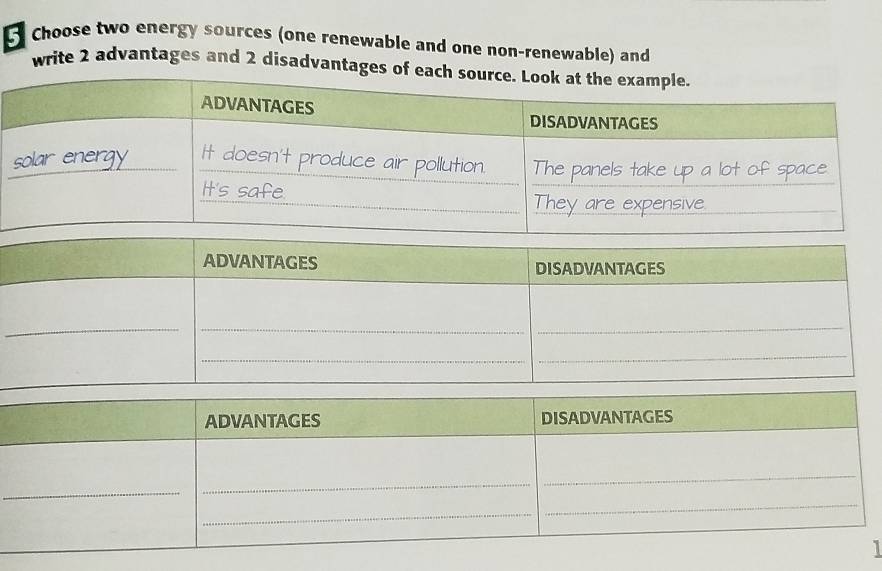 5 Choose two energy sources (one renewable and one non-renewable) and
write 2 advantages and 2 disadvantages of each source. Look at the example.
ADVANTAGES DISADVANTAGES
solar energy It doesn't produce air pollution. The panels take up a lot of space.
It's safe. They are expensive.
ADVANTAGES DISADVANTAGES
ADVANTAGES DISADVANTAGES